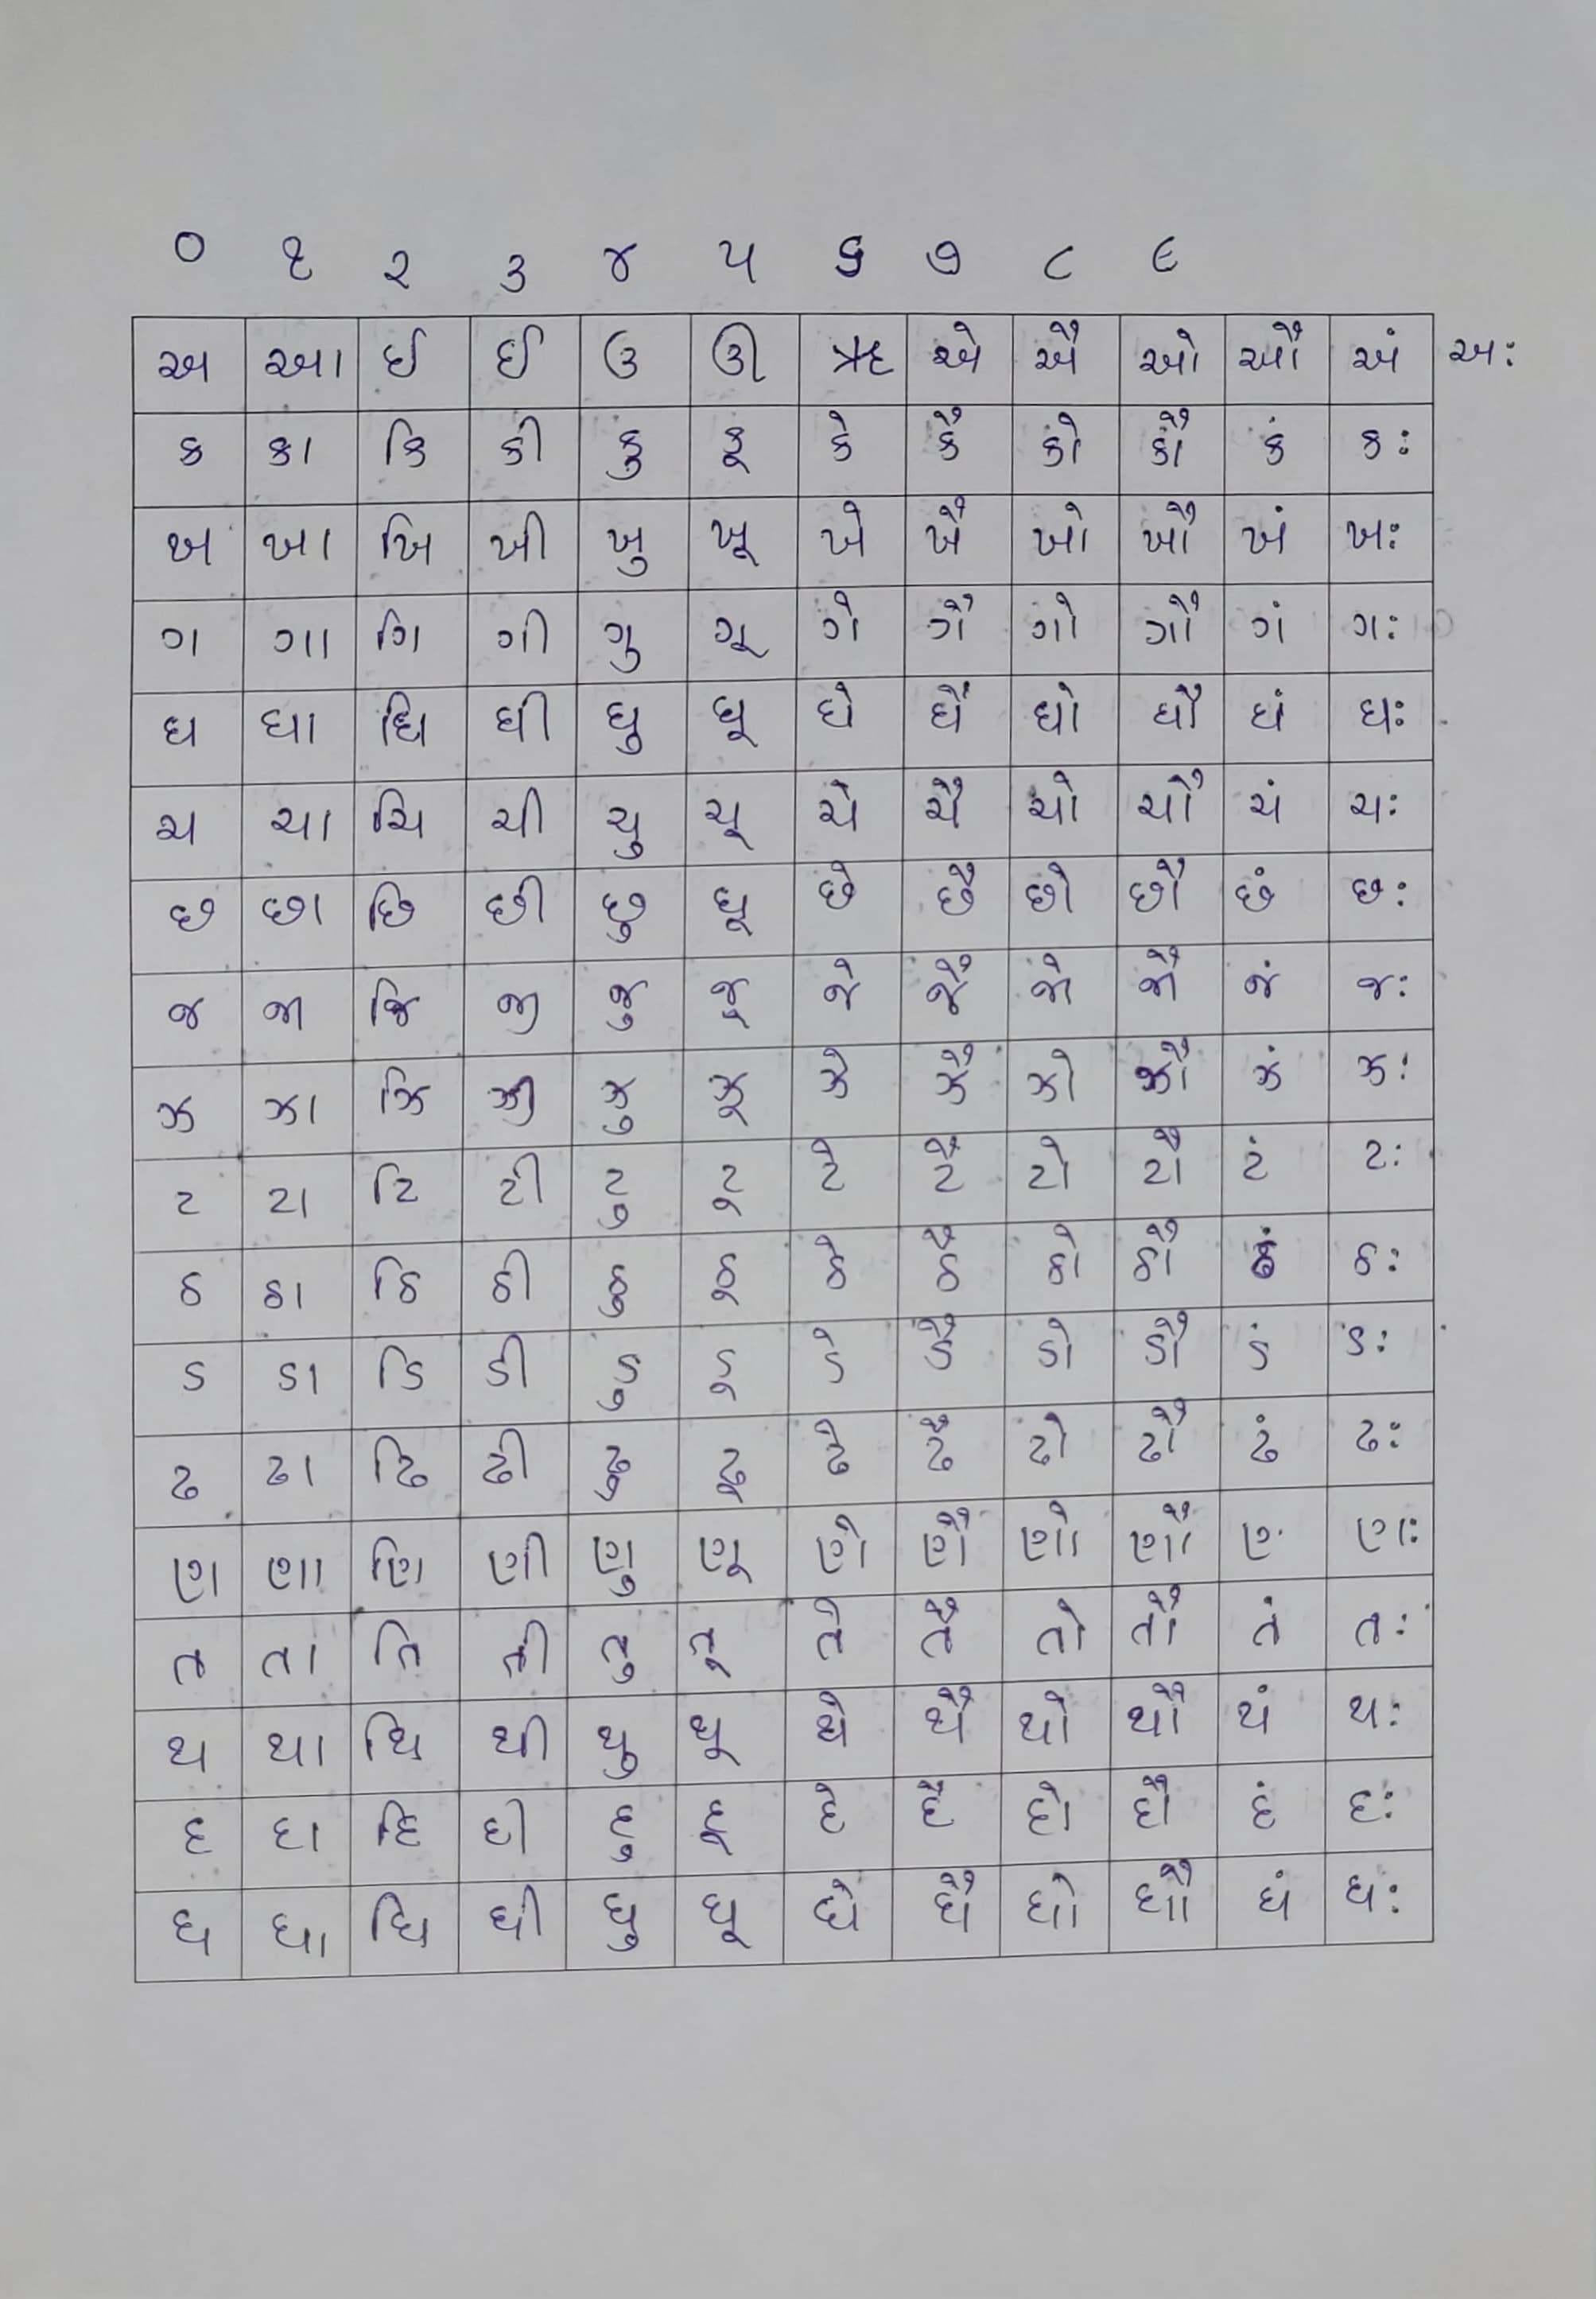 ૦ ૧ ૨ ૩ ૪ ૫ ૬ ૭ ૮ ૯
અ આ ઈ ઈ ઉ ઊ ઋ એ ઐ ઓ ઔ અં અઃ
ક કા કિ કી કુ કૂ કે કૈ કો કૌ કં કઃ
ખ ખા ખિ ખી ખુ ખૂ ખે ખૈ ખો ખૌ ખં ખઃ
ગ ગા ગિ ગી ગુ ગૂ ગે ગૈ ગો ગૌ ગં ગઃ
ઘ ઘા ઘિ ઘી ઘુ ઘૂ ઘે ઘૈ ઘો ઘૌ ઘં ઘઃ
ચ ચા ચિ ચી ચુ ચૂ ચે ચૈ ચો ચૌ ચં ચઃ
છ છા છિ છી છુ છૂ છે છૈ છો છૌ છં છઃ
જ જા જિ જી જુ જૂ જે જૈ જો જૌ જં જઃ
ઝ ઝા ઝિ ઝી ઝુ ઝૂ ઝે ઝૈ ઝો ઝૌ ઝં ઝઃ
ટ ટા ટિ ટી ટુ ટૂ ટે ટૈ ટો ટૌ ટં ટઃ
ઠ ઠા ઠિ ઠી ઠુ ઠૂ ઠે ઠૈ ઠો ઠૌ ઠં ઠઃ
ડ ડા ડિ ડી ડુ ડૂ ડે ડૈ ડો ડૌ ડં ડઃ
ઢ ઢા ઢિ ઢી ઢુ ઢૂ ઢે ઢૈ ઢો ઢૌ ઢં ઢઃ
ણ ણા ણિ ણી ણુ ણૂ ણે ણૈ ણો ણૌ ણઃ
ત તા તિ તી તુ તૂ તે તૈ તો તૌ તં તઃ
થ થા થિ થી થુ થૂ થે થૈ થો થૌ થં થઃ
દ દા દિ દી દુ દૂ દે દૈ દો દૌ દં દઃ
ધ ધા ધિ ધી ધુ ધૂ ધે ધૈ ધો ધૌ ધં ધઃ